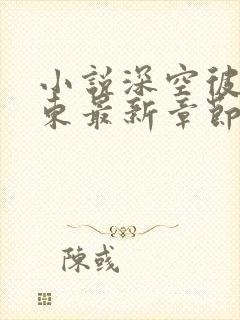 小說深空彼
東最新章節
陳彧